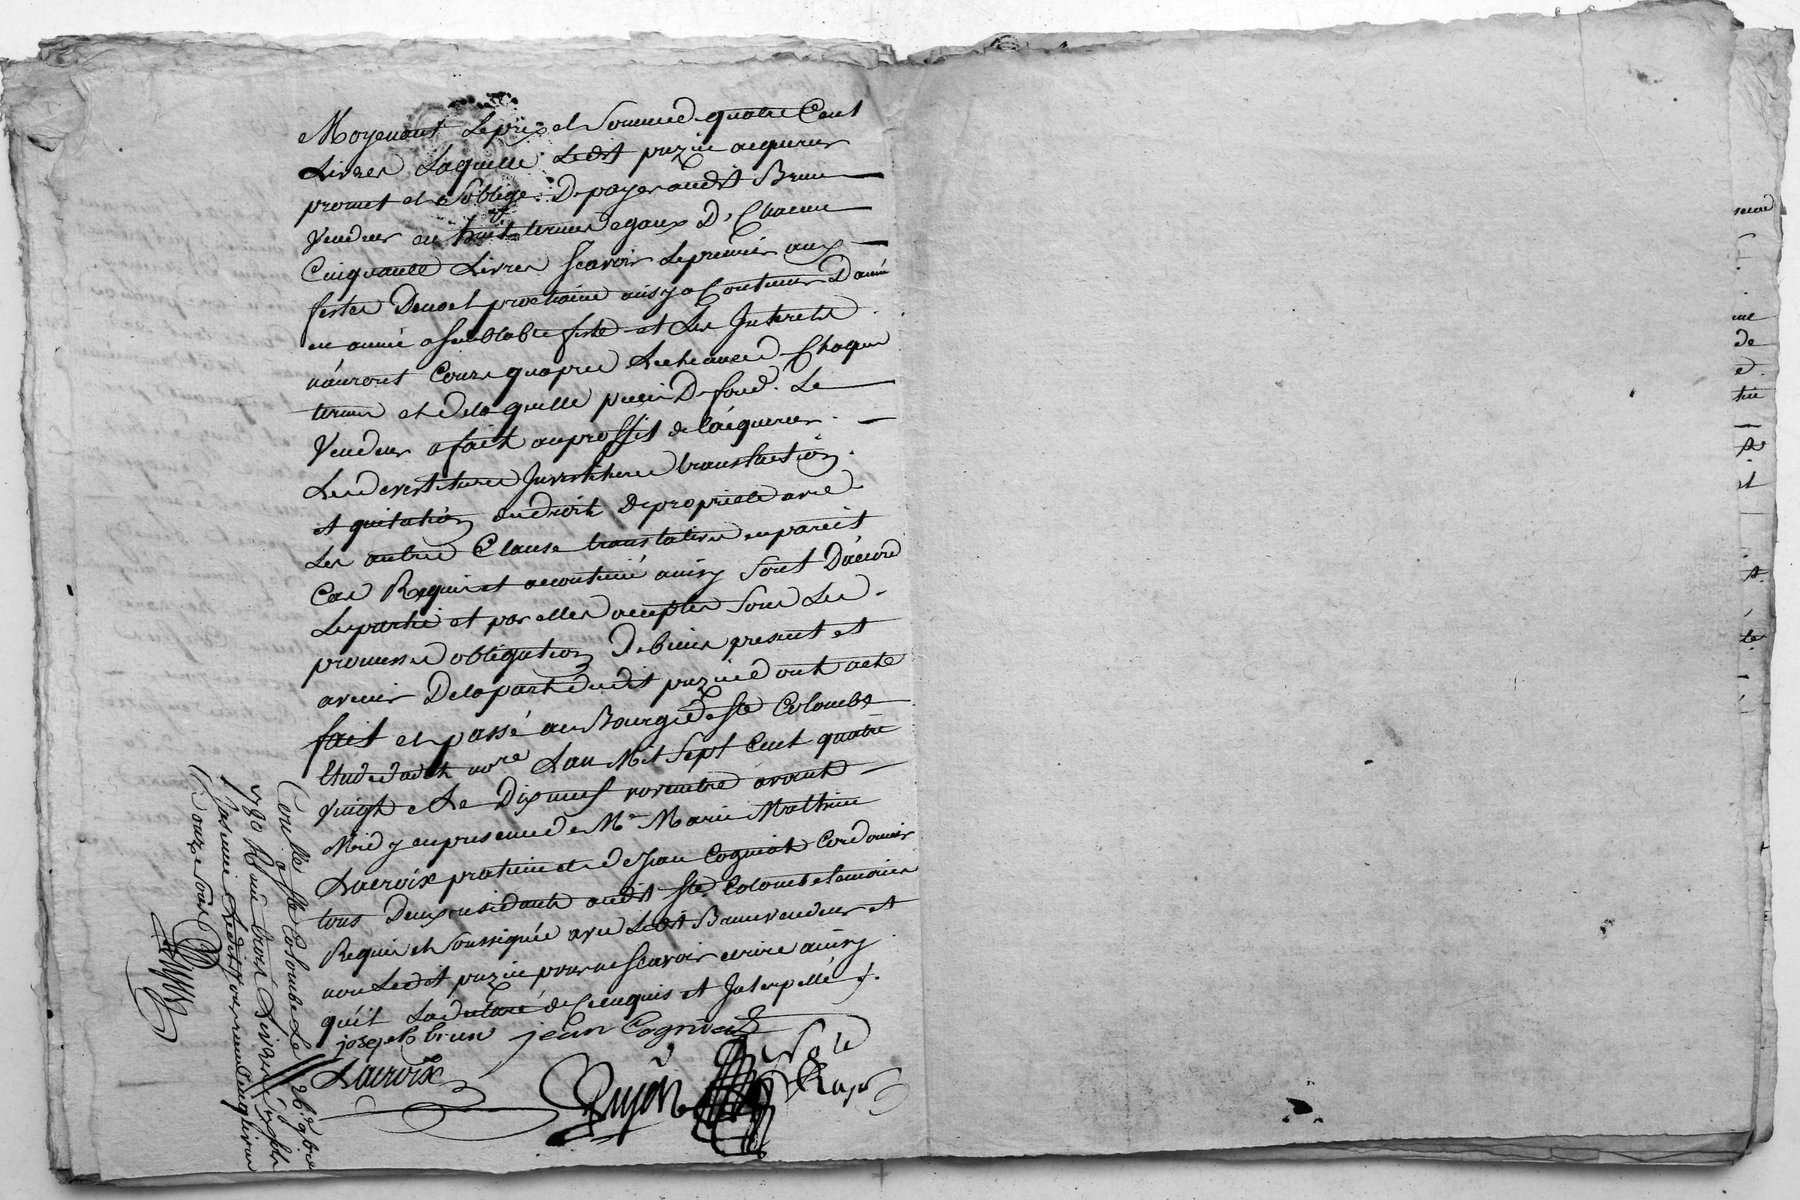 Moyenant Le prix et Somme de quatre Cent
Livres Laquelle Ledit puzin acquereur
promet et S'oblige De payer audit Brun
Vendeur en huit termes egaux D'Chacun
Cinquante Livres Scavoir Le premier aux
festes De noel prochaine ainsy a Continuer D'année
en année a Semblable feste et Les Interets
n'auront Cours qu'apres L'echeance de Chaque
terme et de laquelle piece De fond Le
Vendeur a fait au proffit de l'aquereur
Les devestitures Investitures translation
et quitation du droit de propriete avec
Les autres Clause translatives en pareil
Cas Requis et acoutumé ainsy sont D'acord
Les partie et par elles acceptes Sous Les
promesses obligation De biens present et
avenir De la part dudit puzin dont acte
fait et passé au Bourg de Ste Colombe
Etude dudit nore L'an Mil Sept Cent quatre
Vingt et Le Dix neuf novembre avant
Midy en presence de Me Marie Mathieu
Lacroix praticien et de Jean Cogniat Cordonier
tous Deux residants audit Ste Colombe temoins
Requis et Soussignée avec Ledit Brun vendeur et
non Ledit puzin pour ne Scavoir ecrire ainsy
qu'il La declaré de Ce enquis et Interpellé
joseph brun jean Cogniat
Lacroix
Guyon
Conllé a Ste Colombe Le 26 9bre
1780 R
trois Livres